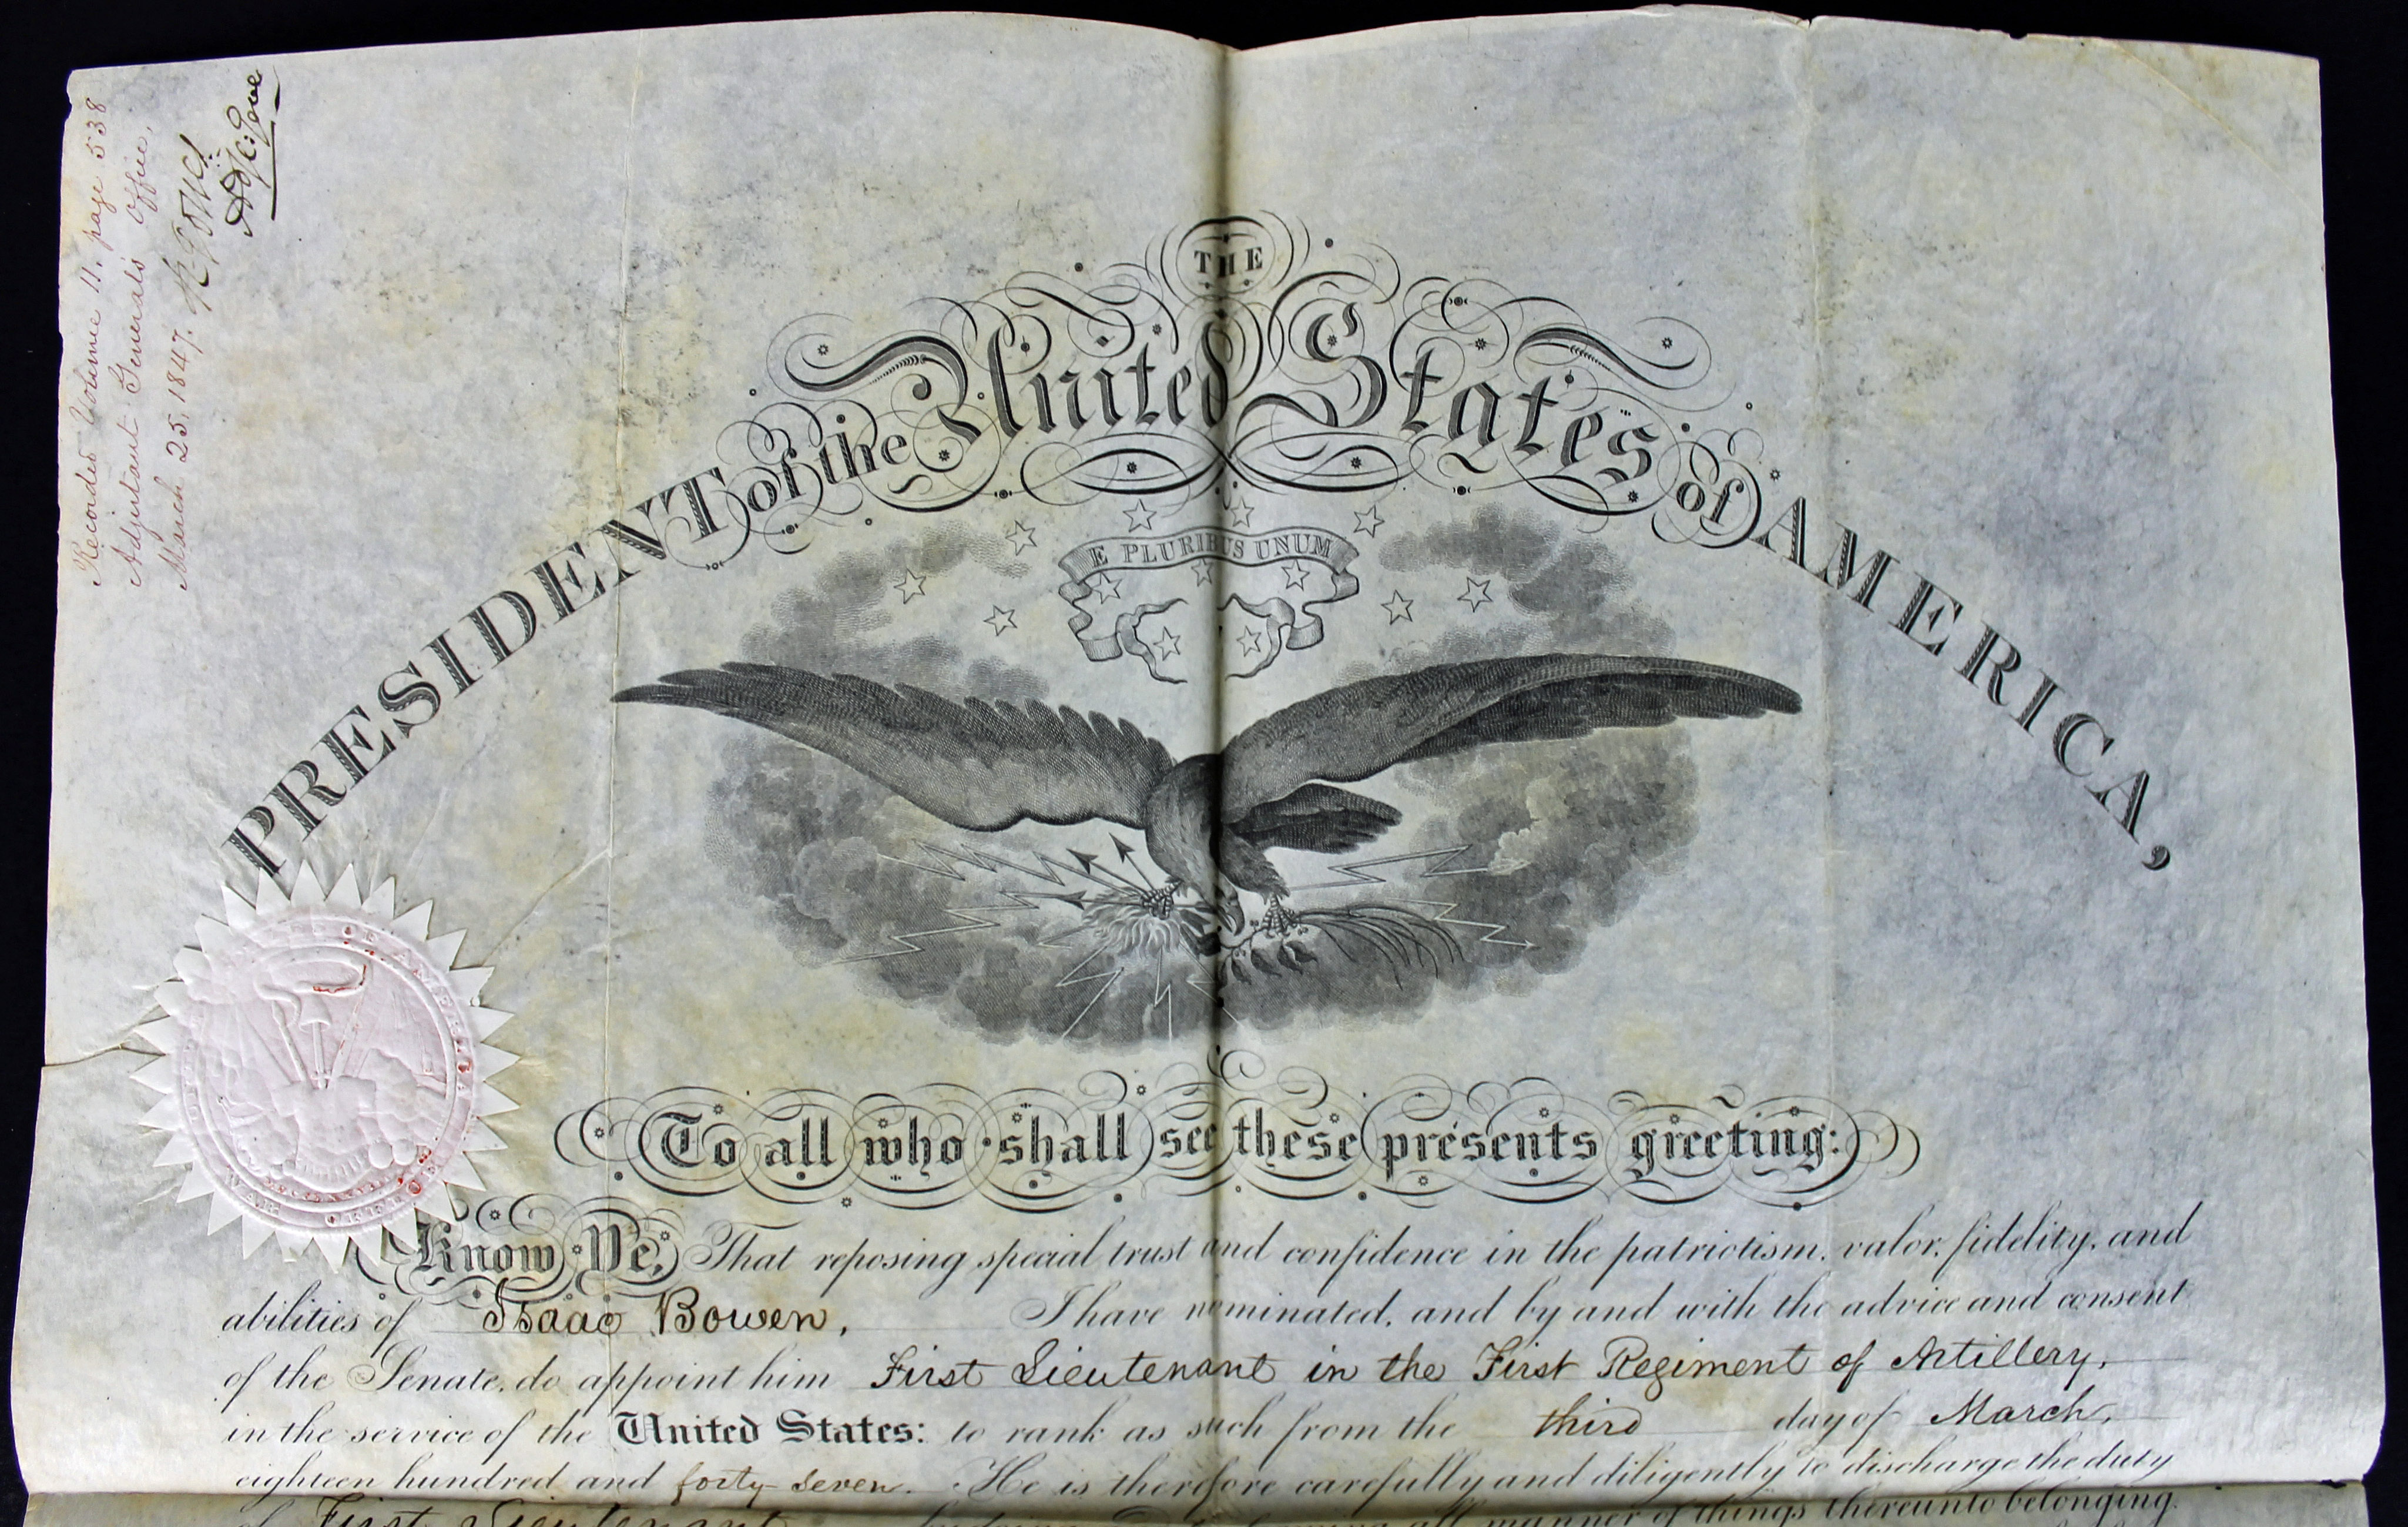 Recorded Volume 11. page 538
Adjutant General's Office,
March 25, 1847. R. Jones
Adj: Gene
THE
PRESIDENT of the United States of AMERICA,
E PLURIBUS UNUM
To all who shall see these presents greeting:
Know Ye, That reposing special trust and confidence in the patriotism, valor, fidelity, and
abilities of Isaac Bowen, I have nominated, and by and with the advice and consent
of the Senate, do appoint him First Lieutenant in the First Regiment of Artillery,
in the service of the United States: to rank as such from the third day of March,
eighteen hundred and forty seven. He is therefore carefully and diligently to discharge the duty
of First Lieutenant all manner of things thereunto belonging.
AMERICA
WAR OFFICE